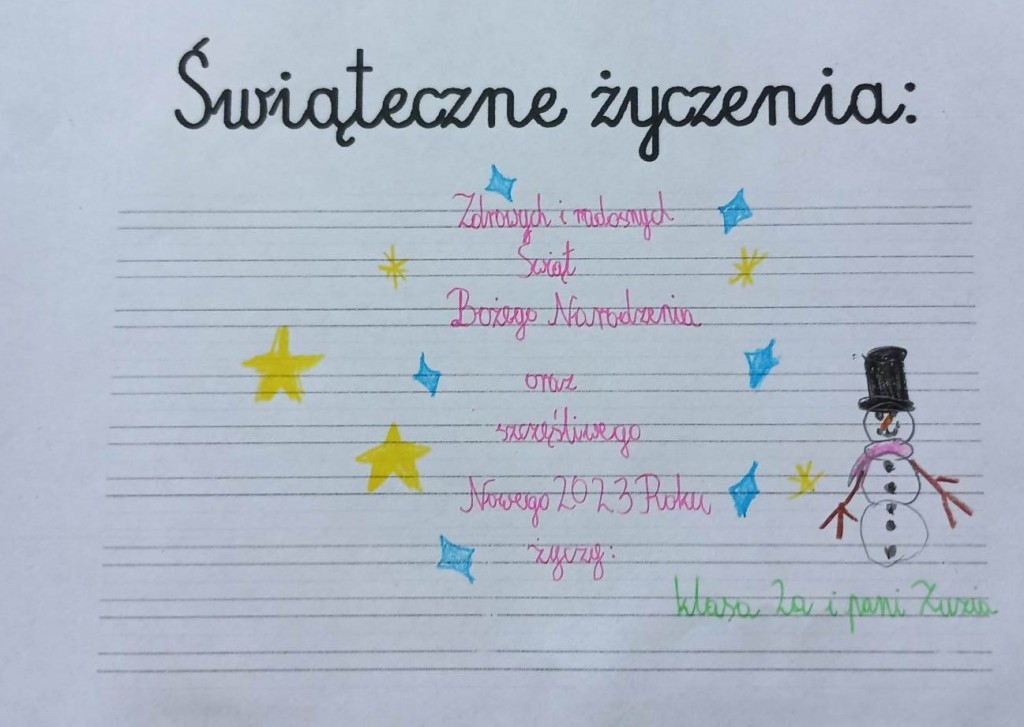 Świąteczne życzenia:
Zdrowych i radosnych
Świąt
Bożego Narodzenia
oraz
szczęśliwego
Nowego 2023 Roku
życzy:
klasa 2a i pani Zuzia